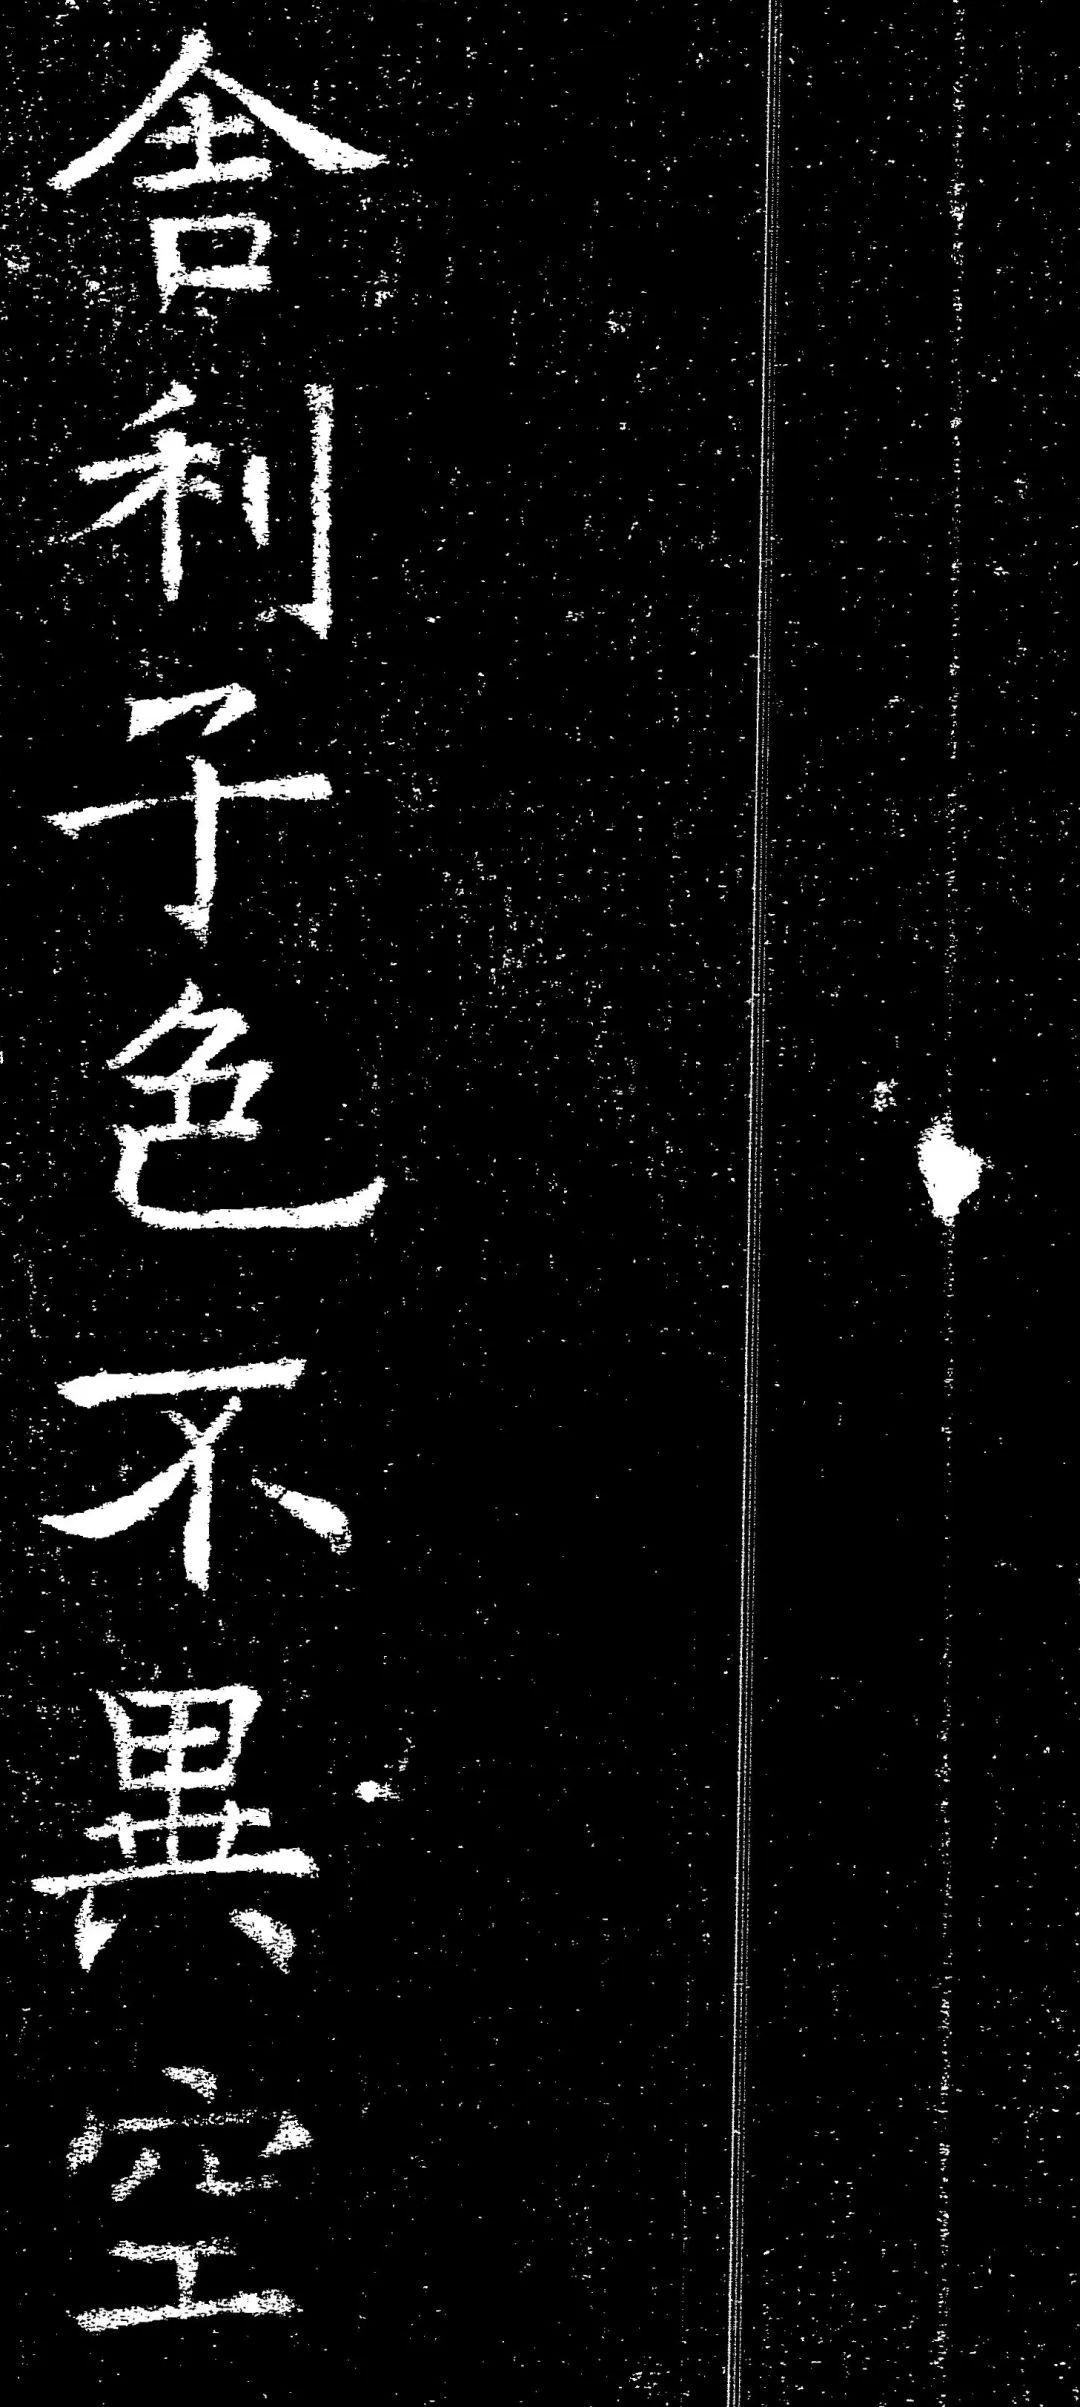 舍利子色不異空